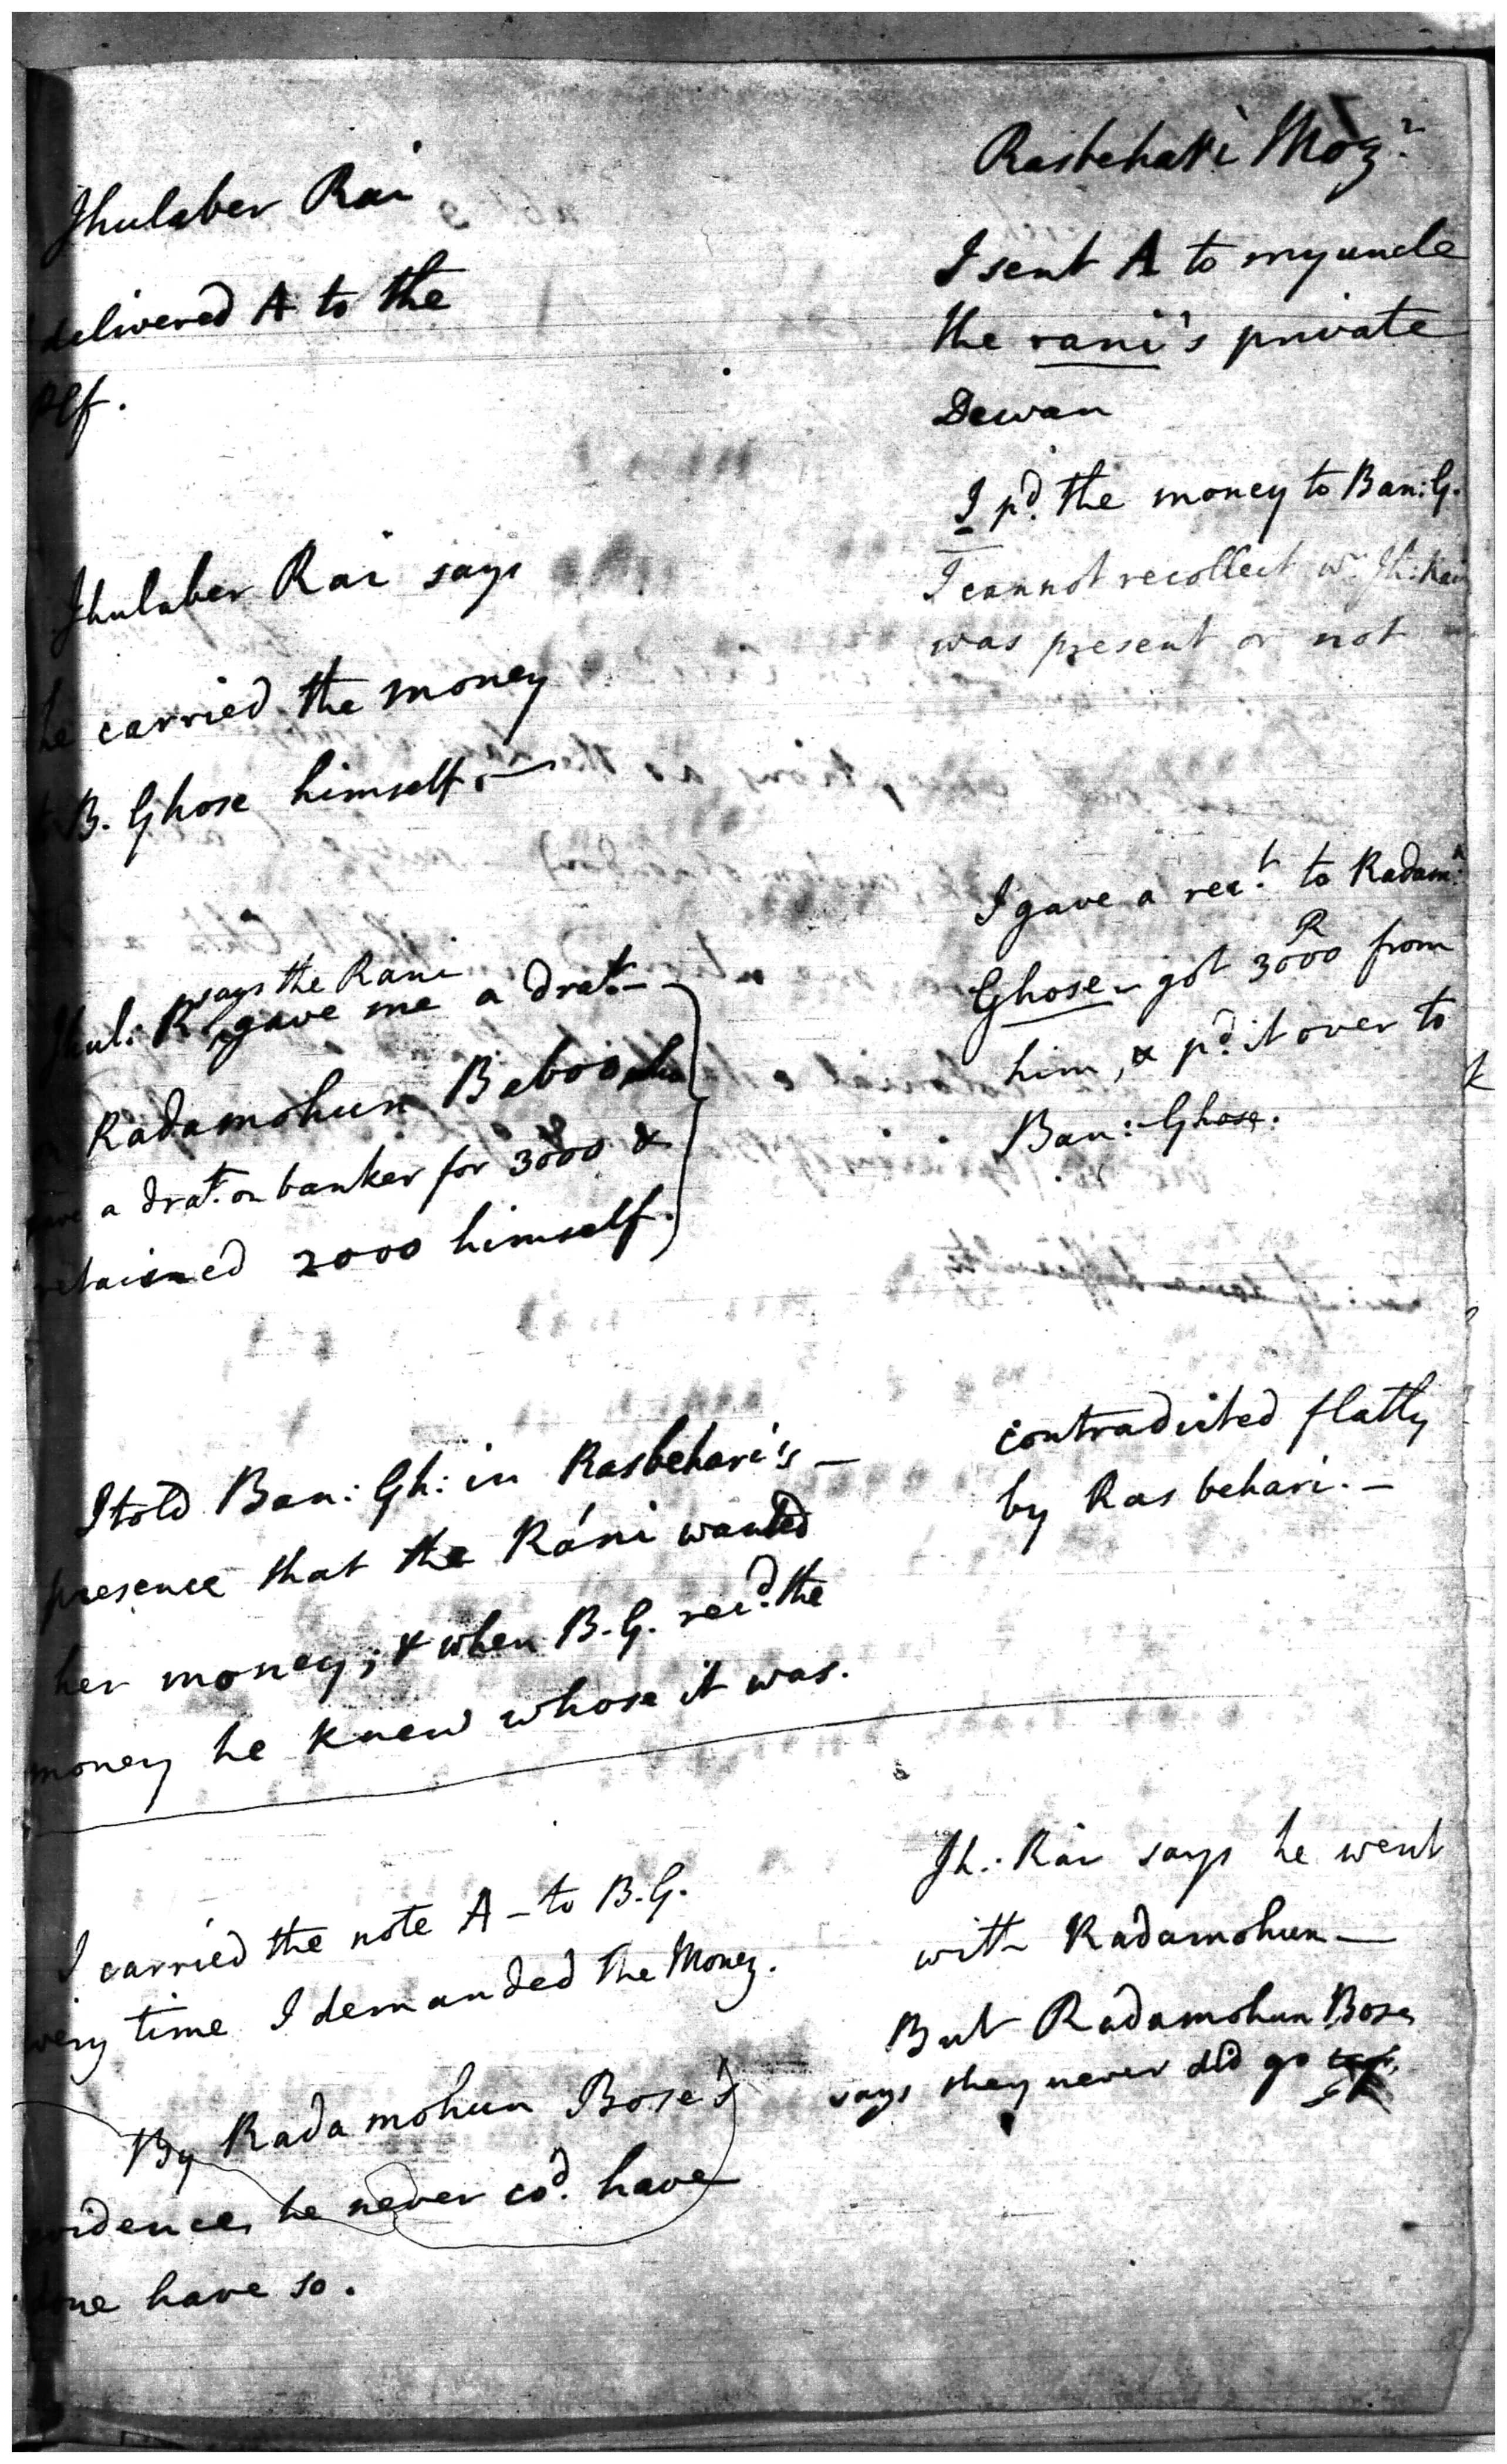 Jhulaber Rai
delivered A to the
self.
Jhulaber Rai says
he carried the money
to B. Ghose himself. —
says the Rani
Jhul: R. gave me a dra.t —
Radamohun Beboo
a dra.t on banker for 3000 &
retained 2000 himself.
I told Ban: Gh: in Rasbehari's —
presence that the Ráni wanted
her money; & when B. G. rec.d the
money he knew whose it was.
I carried the note A — to B. G.
every time I demanded the Money.
By Radamohun Bose's
evidence, he never co.d have
done have so.
Rasbehari Moz.r
I sent A to my uncle
the rani's private
Dewan
I p.d the money to Ban: G.
I cannot recollect w.r Jh: Rai
was present or not
I gave a rec.t to Radam.n
Ghose — got 3000 R from
him, & p.d it over to
Ban: Ghose.
contradicted flatly
by Rasbehari. —
Jh: Rai says he went
with Radamohun —
But Radamohun Bose
says they never did go